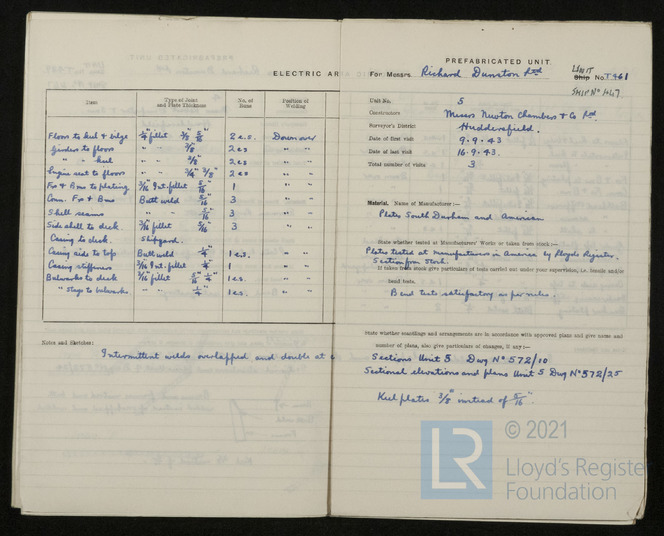 ELECTRIC AR
Item
Type of Joint and Plate Thickness
No. of Runs
Position of Welding
Floors to keel & bilge 1/4" fillet 3/8" 5/16" 2 e.s. Downover
Girders to floors " " 3/8" 2 es " "
" " keel " " 3/8" 2 es " "
Engine seat to floors " " 3/4" 3/8" 2 es " "
Frs & Bms to plating 3/16 Int. fillet 5/16" 1 " "
Conn. Frs & Bms Butt weld 5/16" 3 " "
Shell seams " " 5/16" 3 " "
Side shell to deck 3/16 fillet 5/16" 3 " "
Casing to deck. Shipyard.
Casing side to top Butt weld 1/4" 1 es. " "
Casing stiffeners 3/16 Int. fillet 1/4" 1 " "
Bulwarks to deck 3/16 fillet 5/16" 1/4" 1 es. " "
" stays to bulwarks " " 1/4" 1 es. " "
Notes and Sketches:
Intermittent welds overlapped and double at
PREFABRICATED UNIT
For Messrs. Richard Dunston Ltd UNIT Ship No. T461
SHIP No
Unit No. 5
Constructors Messrs Newton Chambers & Co Ltd.
Surveyor's District Huddersfield.
Date of first visit 9.9.43.
Date of last visit 16.9.43.
Total number of visits 3
Material. Name of Manufacturer:—
Plates South Durham and American
State whether tested at Manufacturers' Works or taken from stock:—
Plates tested at manufacturers in America by Lloyds Register.
Section from Stock.
If taken from stock give particulars of tests carried out under your supervision, i.e. tensile and/or
bend tests.
Bend tests satisfactory as per rules.
State whether scantlings and arrangements are in accordance with approved plans and give name and
number of plans, also give particulars of changes, if any:—
Sections Unit 5 Dwg No 572/10
Sectional elevations and plans Unit 5 Dwg No 572/25
Keel plates 3/8" instead of 5/16".
© 2021
LR
Lloyd's Register
Foundation